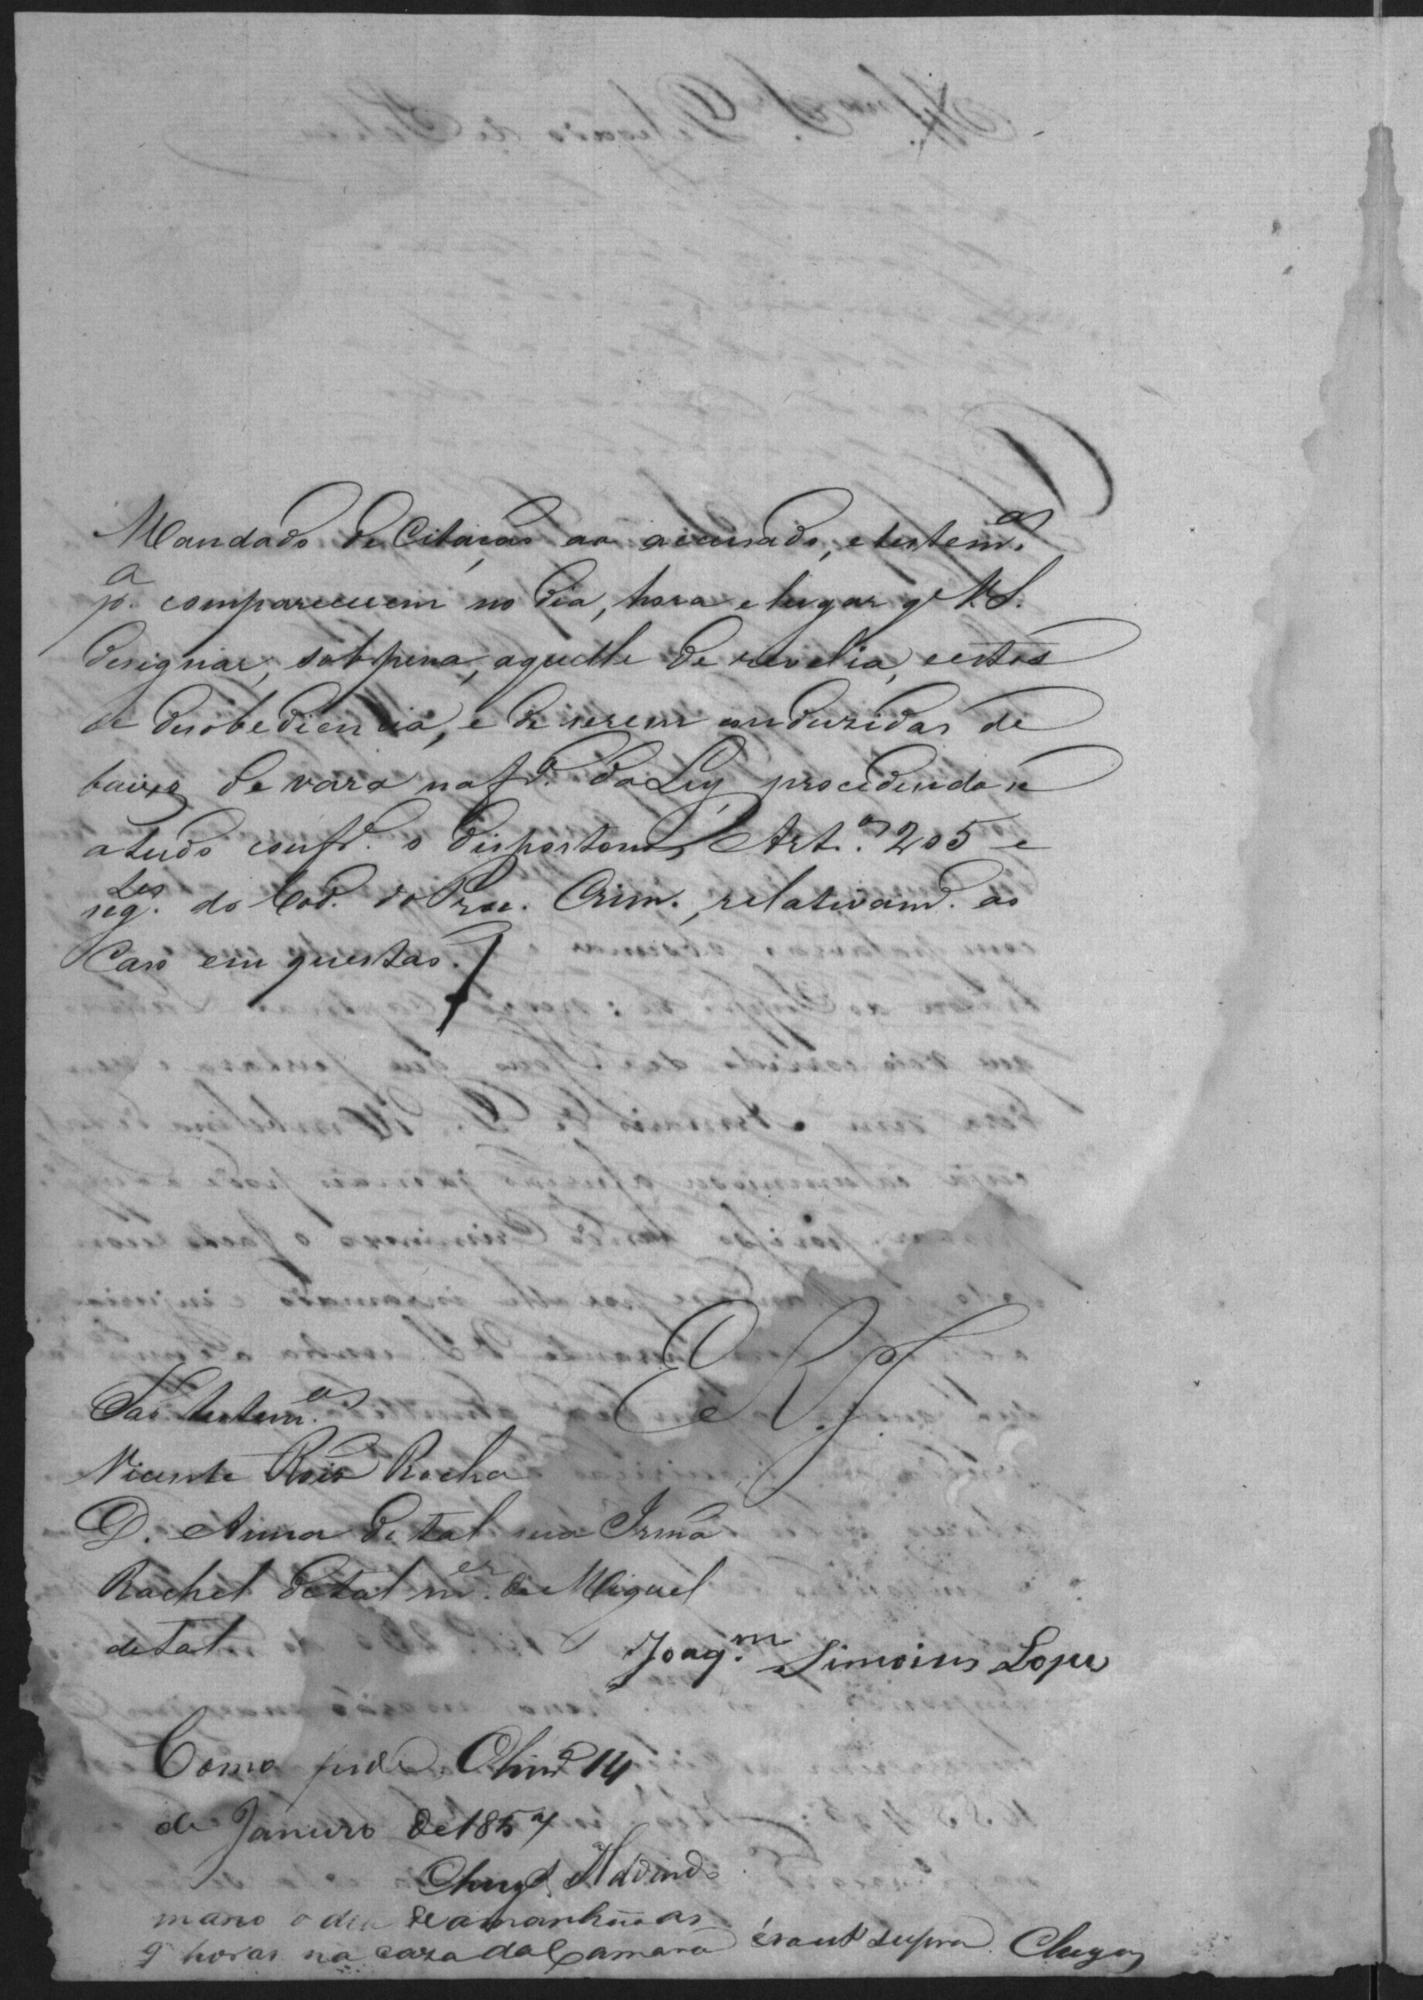 Mandado de Citação ao accusado, e testem.as
p.a comparecerem no dia, hora e lugar q̃ V.S.
designar, sob pena, aquelle de revelia, e estas
de desobediencia, e de serem conduzidas de
baixo de vara na f.a da Ley procedendo se
a tudo conf.e o disposto nos Art.os 205 e
seg.tes do Cod. do Proc. Crim., relativam.e ao
Caso em questão.
E. R. J.
São testem.as
Vicente Rocha
D. Anna de tal sua Irmã
Rachel de tal m.er de Miguel
de tal
Joaq.m Simoins Lopes
Como pede. 14
de Janeiro de 1857
marco o dia de amanhã as
9 horas na caza da Camara era ut supra.